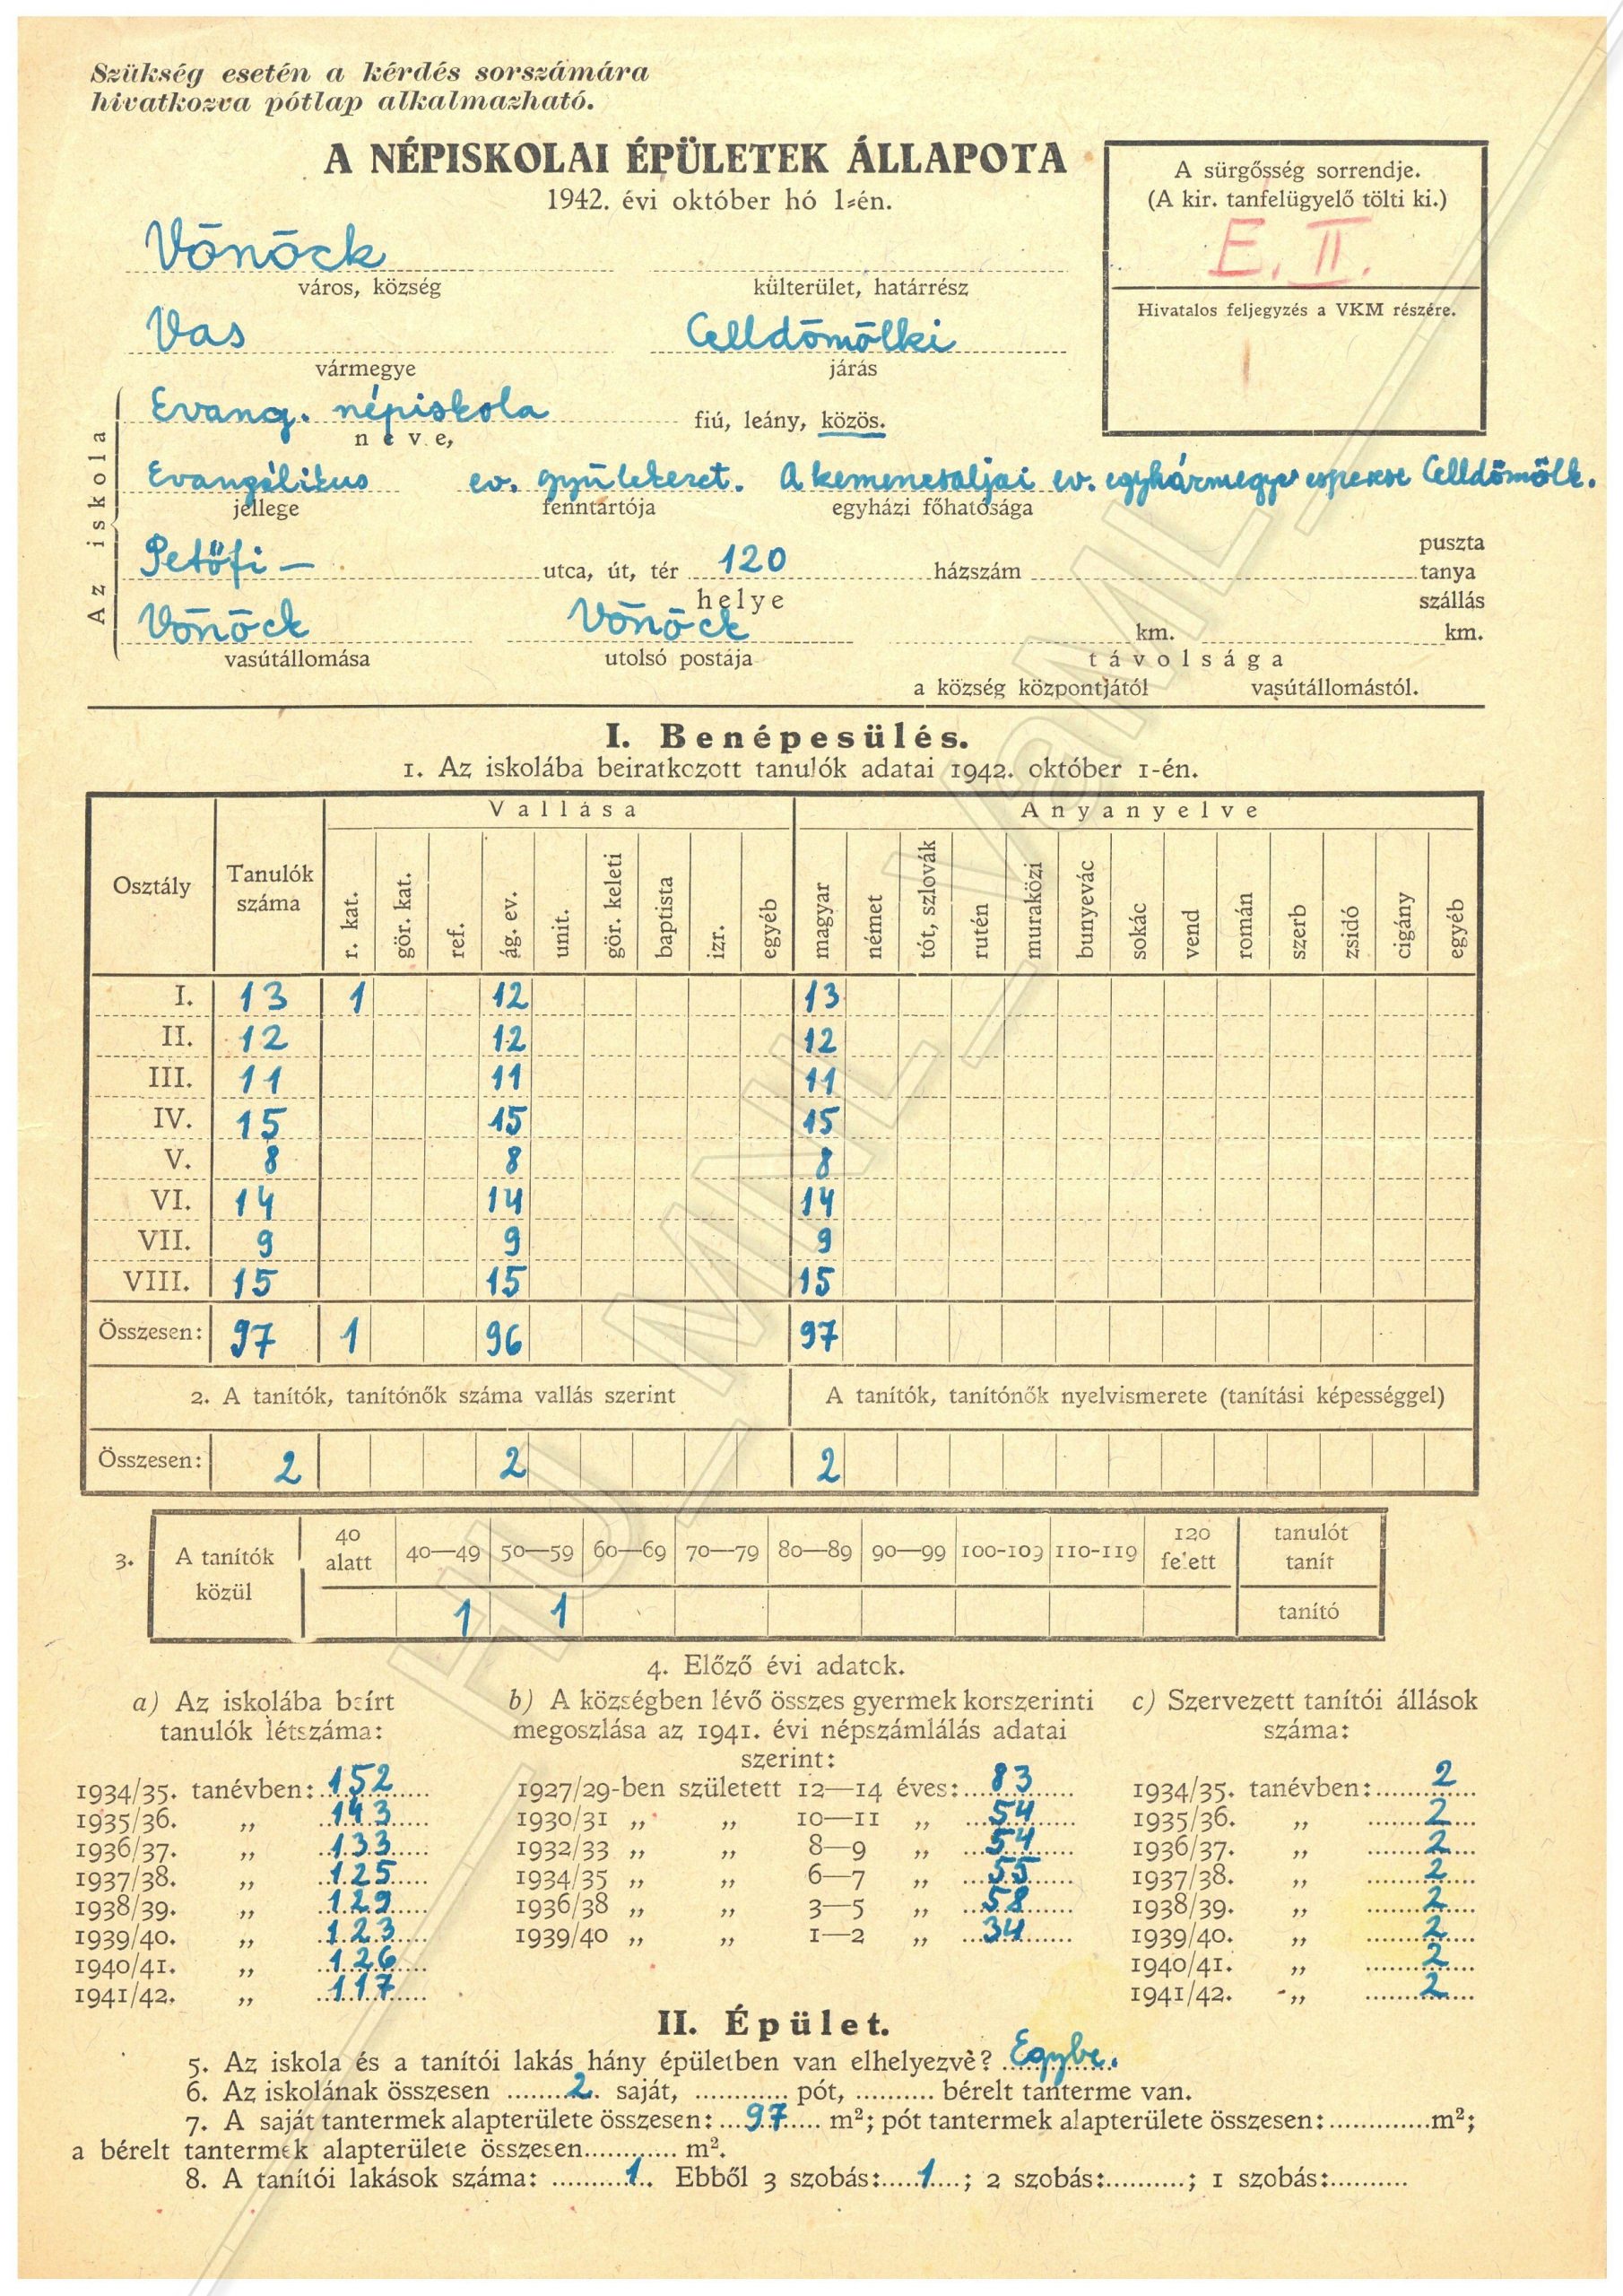 Szükség esetén a kérdés sorszámára
hivatkozva pótlap alkalmazható.
A NÉPISKOLAI ÉPÜLETEK ÁLLAPOTA
1942. évi október hó 1-én.
A sürgősség sorrendje.
(A kir. tanfelügyelő tölti ki.)
E. II.
Hivatalos feljegyzés a VKM részére.
Vönöck
város, község külterület, határrész
Vas Celldömölki
vármegye járás
Az iskola
Evang. népiskola fiú, leány, közös.
neve,
Evangélikus ev. gyülekezet. A kemenesaljai ev. egyházmegye esperese Celldömölk.
jellege fenntartója egyházi főhatósága
puszta
Petőfi — utca, út, tér 120 házszám tanya
helye szállás
Vönöck Vönöck km. km.
vasútállomása utolsó postája távolsága
a község központjától vasútállomástól.
I. Benépesülés.
1. Az iskolába beiratkozott tanulók adatai 1942. október 1-én.
Osztály Tanulók száma Vallása Anyanyelve
r. kat. gör. kat. ref. ág. ev. unit. gör. keleti baptista izr. egyéb magyar német tót, szlovák rutén muraközi bunyevác sokác vend román szerb zsidó cigány egyéb
I. 13 1 12 13
II. 12 12 12
III. 11 11 11
IV. 15 15 15
V. 8 8 8
VI. 14 14 14
VII. 9 9 9
VIII. 15 15 15
Összesen: 97 1 96 97
2. A tanítók, tanítónők száma vallás szerint A tanítók, tanítónők nyelvismerete (tanítási képességgel)
Összesen: 2 2 2
3. A tanítók közül 40 alatt 40—49 50—59 60—69 70—79 80—89 90—99 100-109 110-119 120 felett tanulót tanít
1 1 tanító
4. Előző évi adatok.
a) Az iskolába beírt tanulók létszáma:
1934/35. tanévben: 152
1935/36. „ 143
1936/37. „ 133
1937/38. „ 125
1938/39. „ 129
1939/40. „ 123
1940/41. „ 126
1941/42. „ 117
b) A községben lévő összes gyermek korszerinti
megoszlása az 1941. évi népszámlálás adatai
szerint:
1927/29-ben született 12—14 éves: 83
1930/31 „ „ 10—11 „ 54
1932/33 „ „ 8—9 „ 54
1934/35 „ „ 6—7 „ 55
1936/38 „ „ 3—5 „ 58
1939/40 „ „ 1—2 „ 34
c) Szervezett tanítói állások
száma:
1934/35. tanévben: 2
1935/36. „ 2
1936/37. „ 2
1937/38. „ 2
1938/39. „ 2
1939/40. „ 2
1940/41. „ 2
1941/42. „ 2
II. Épület.
5. Az iskola és a tanítói lakás hány épületben van elhelyezve? Egybe.
6. Az iskolának összesen 2 saját, pót, bérelt tanterme van.
7. A saját tantermek alapterülete összesen: 97 m²; pót tantermek alapterülete összesen: m²;
a bérelt tantermek alapterülete összesen m².
8. A tanítói lakások száma: 1. Ebből 3 szobás: 1; 2 szobás: ; 1 szobás:
HU_MNL_VaML